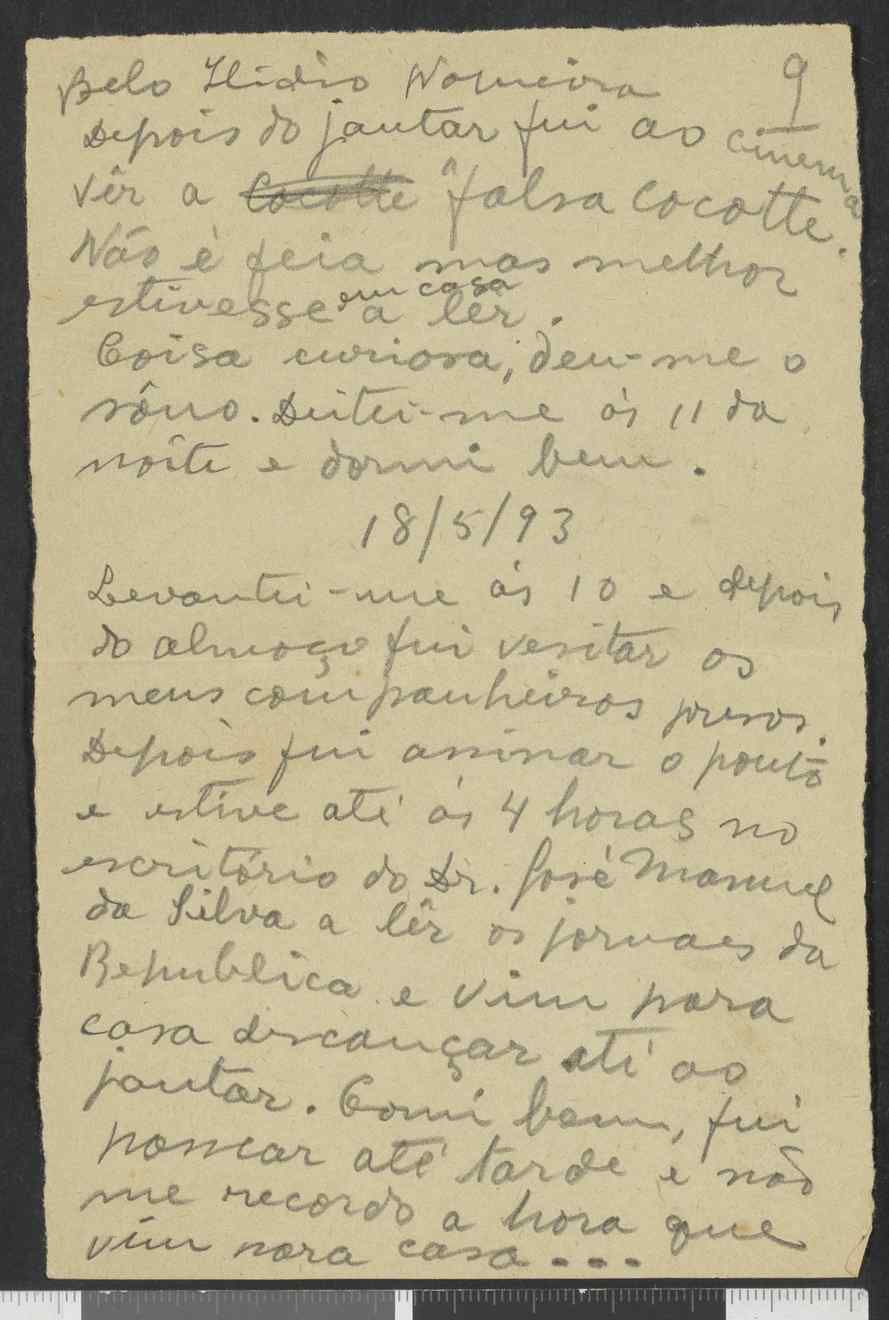 9
Belo Ilidio Nogueira
Depois do jantar fui ao cinema
vêr a Cocotte "falsa cocotte.
Não é feia mas melhor
estivesse em casa a lêr.
Coisa curiosa, deu-me o
sôno. Deitei-me ás 11 da
noite e dormi bem.
18/5/93
Levantei-me ás 10 e depois
do almoço fui vesitar os
meus companheiros presos.
Depois fui assinar o ponto
e estive até ás 4 horas no
escritório do Dr. José Manuel
da Silva a lêr os jornaes da
Republica e vim para
casa descançar até ao
jantar. Comi bem, fui
passear até tarde e não
me recordo a hora que
vim para casa...